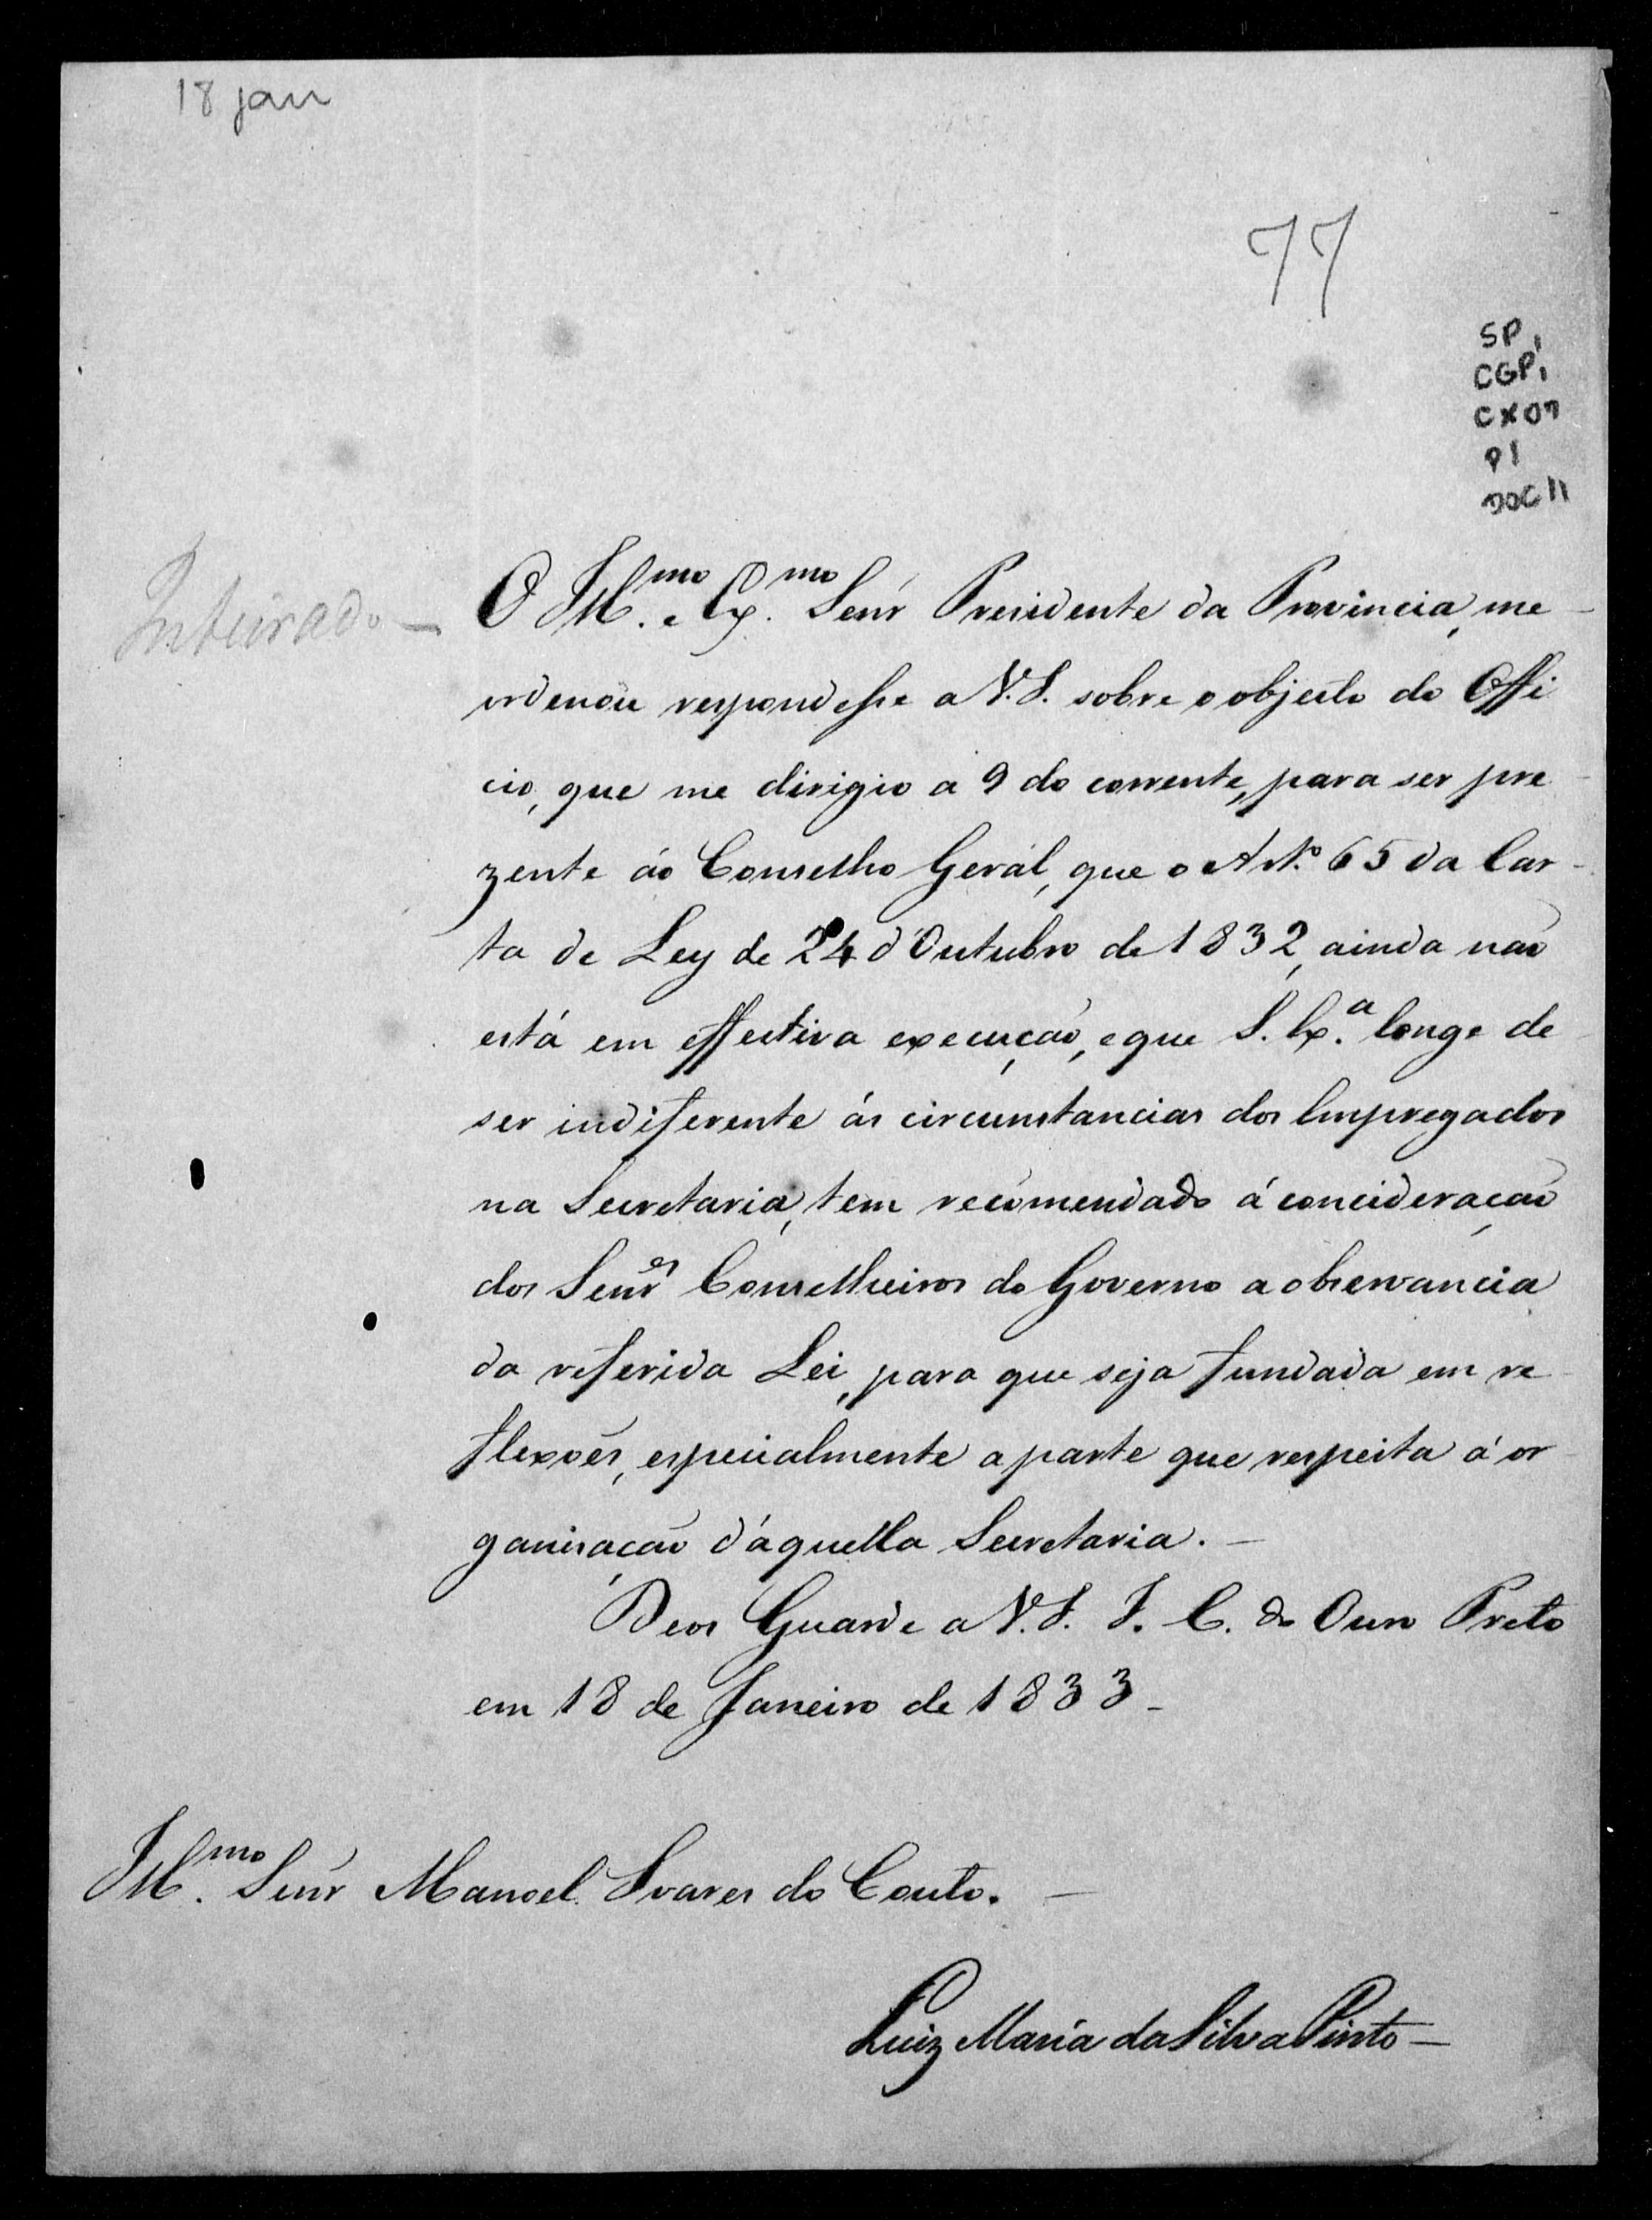 18 jan
77
SP,
CGP,
CX07
P1
DOC 11
Inteirado —
O Ill.mo e Ex.mo Senr Presidente da Provincia, me
ordenou respondesse a V.S. sobre o objecto do Offi
cio, que me dirigio a 9 do corrente, para ser pre
zente áo Conselho Gerál, que o Art.º 65 da Car-
ta de Ley de 24 d'Outubro de 1832, ainda naõ
está em effectiva execuçaõ, e que S. Ex.a longe de
ser indiferente ás circumstancias dos Empregados
na Secretaria, tem recomendado á concideraçaõ
dos Senr.es Conselheiros do Governo a observancia
da referida Lei, para que seja fundada em re
flexoẽs, especialmente a parte que respeita á or
ganisaçaõ d'áquella Secretaria. —
Deos Guarde a V.S. I. C. do Ouro Preto
em 18 de Janeiro de 1833 -
Ill.mo Senr Manoel Soares do Couto. —
Luiz Maria da Silva Pinto —